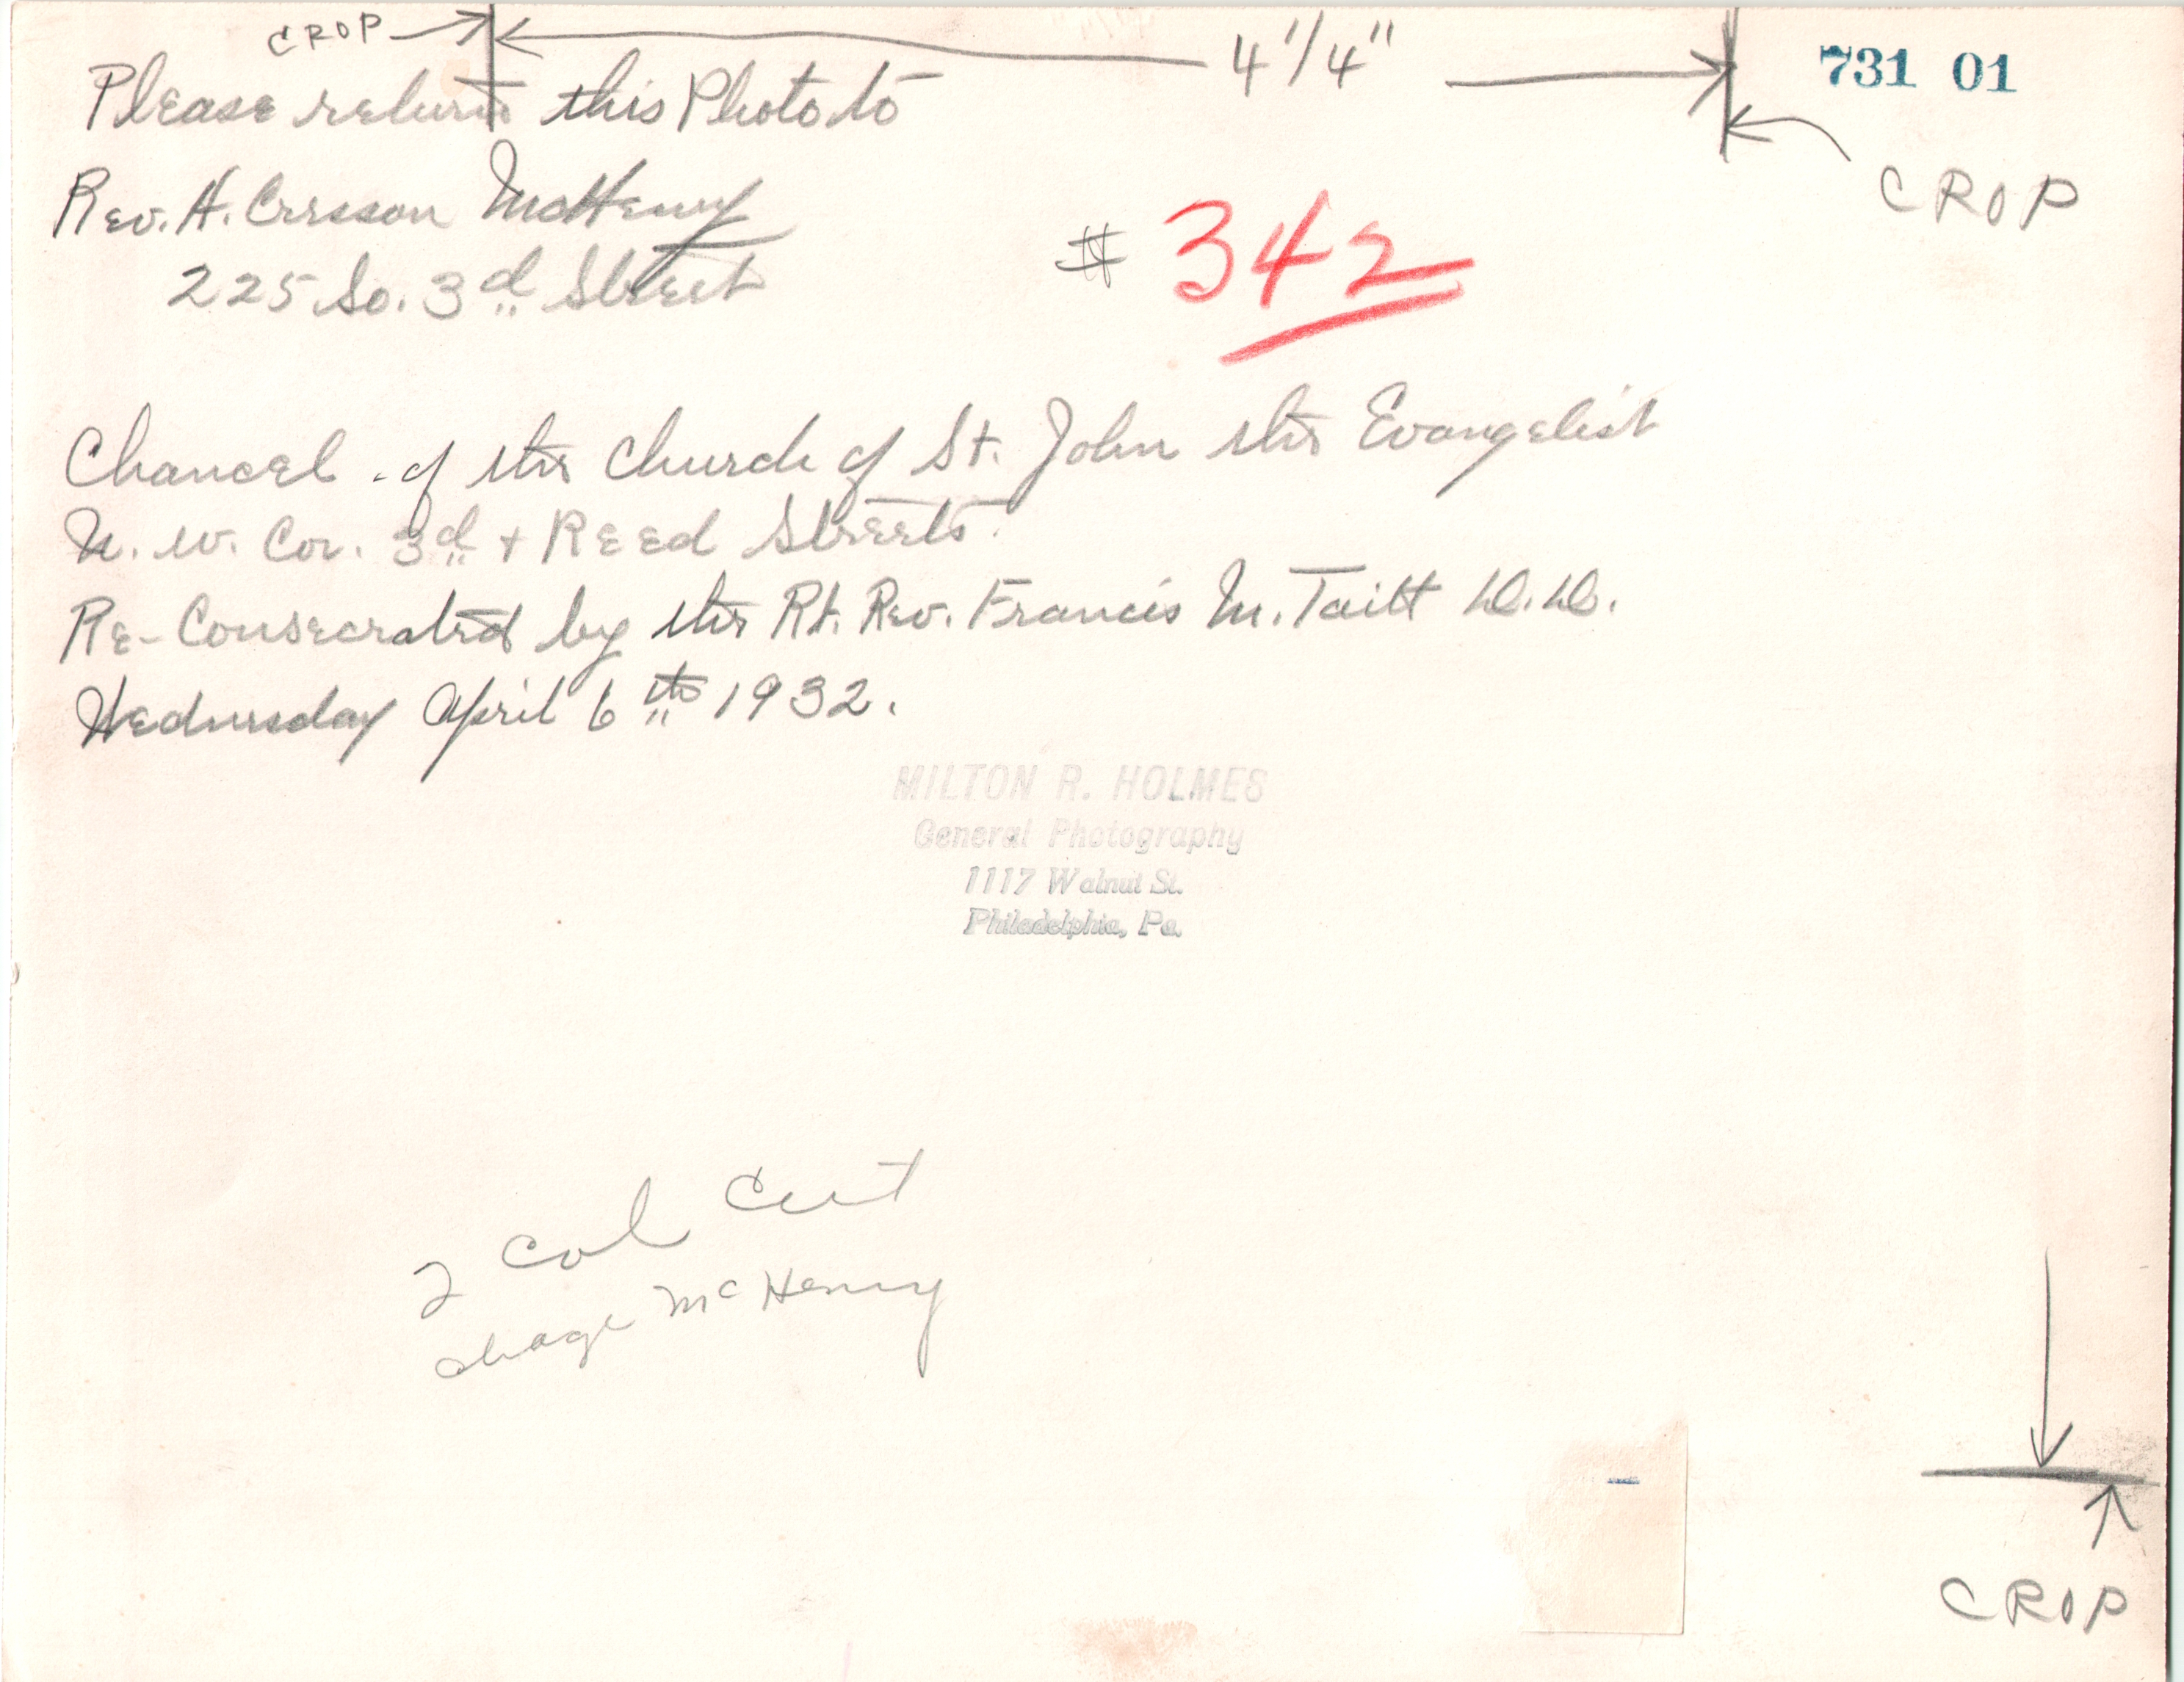 CROP
4 1/4"
731 01
CROP
Please return this Photo to
Rev. H. Cresson McHenry
225 So. 3d Street
# 342
Chancel of the Church of St. John the Evangelist
N. W. Cor. 3d + Reed Streets.
Re-Consecrated by the Rt. Rev. Francis M. Taitt D.D.
Wednesday April 6th 1932.
MILTON R. HOLMES
General Photography
1117 Walnut St.
Philadelphia, Pa.
2 col cut
McHenry
CROP